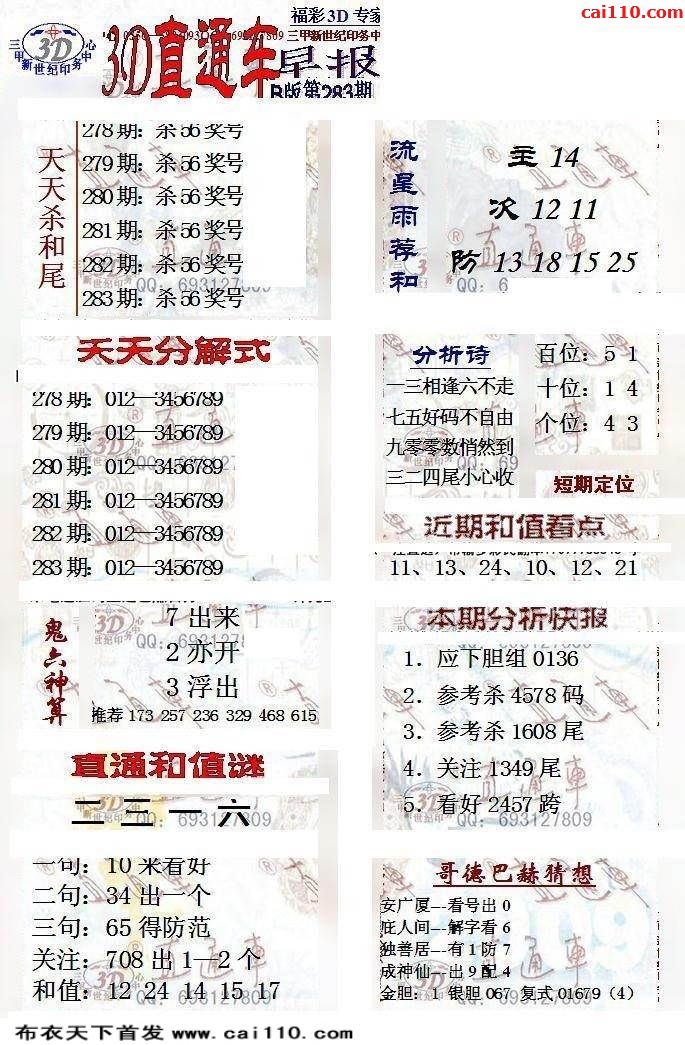 cai110.com
福彩3D专家
三甲新世纪印务中心
3D
3D直通车
早报
B版第283期
天天杀和尾
278期：杀56奖号
279期：杀56奖号
280期：杀56奖号
281期：杀56奖号
282期：杀56奖号
283期：杀56奖号
流星雨荐和
主 14
次 12 11
防 13 18 15 25
天天分解式
278期：012—3456789
279期：012—3456789
280期：012—3456789
281期：012—3456789
282期：012—3456789
283期：012—3456789
分析诗
一三相逢六不走
七五好码不自由
九零零数悄然到
三二四尾小心收
百位：5 1
十位：1 4
个位：4 3
短期定位
近期和值看点
11、13、24、10、12、21
鬼六神算
7出来
2亦开
3浮出
推荐 173 257 236 329 468 615
本期分析快报
1．应下胆组0136
2．参考杀4578码
3．参考杀1608尾
4．关注1349尾
5．看好2457跨
QQ：693127809
直通和值谜
二三一六
一句：10来看好
二句：34出一个
三句：65得防范
关注：708出1—2个
和值：12 24 14 15 17
哥德巴赫猜想
安广厦---看号出0
庇人间---解字看6
独善居---有1防7
成神仙---出9配4
金胆：1 银胆067 复式01679（4）
布衣天下首发 www.cai110.com